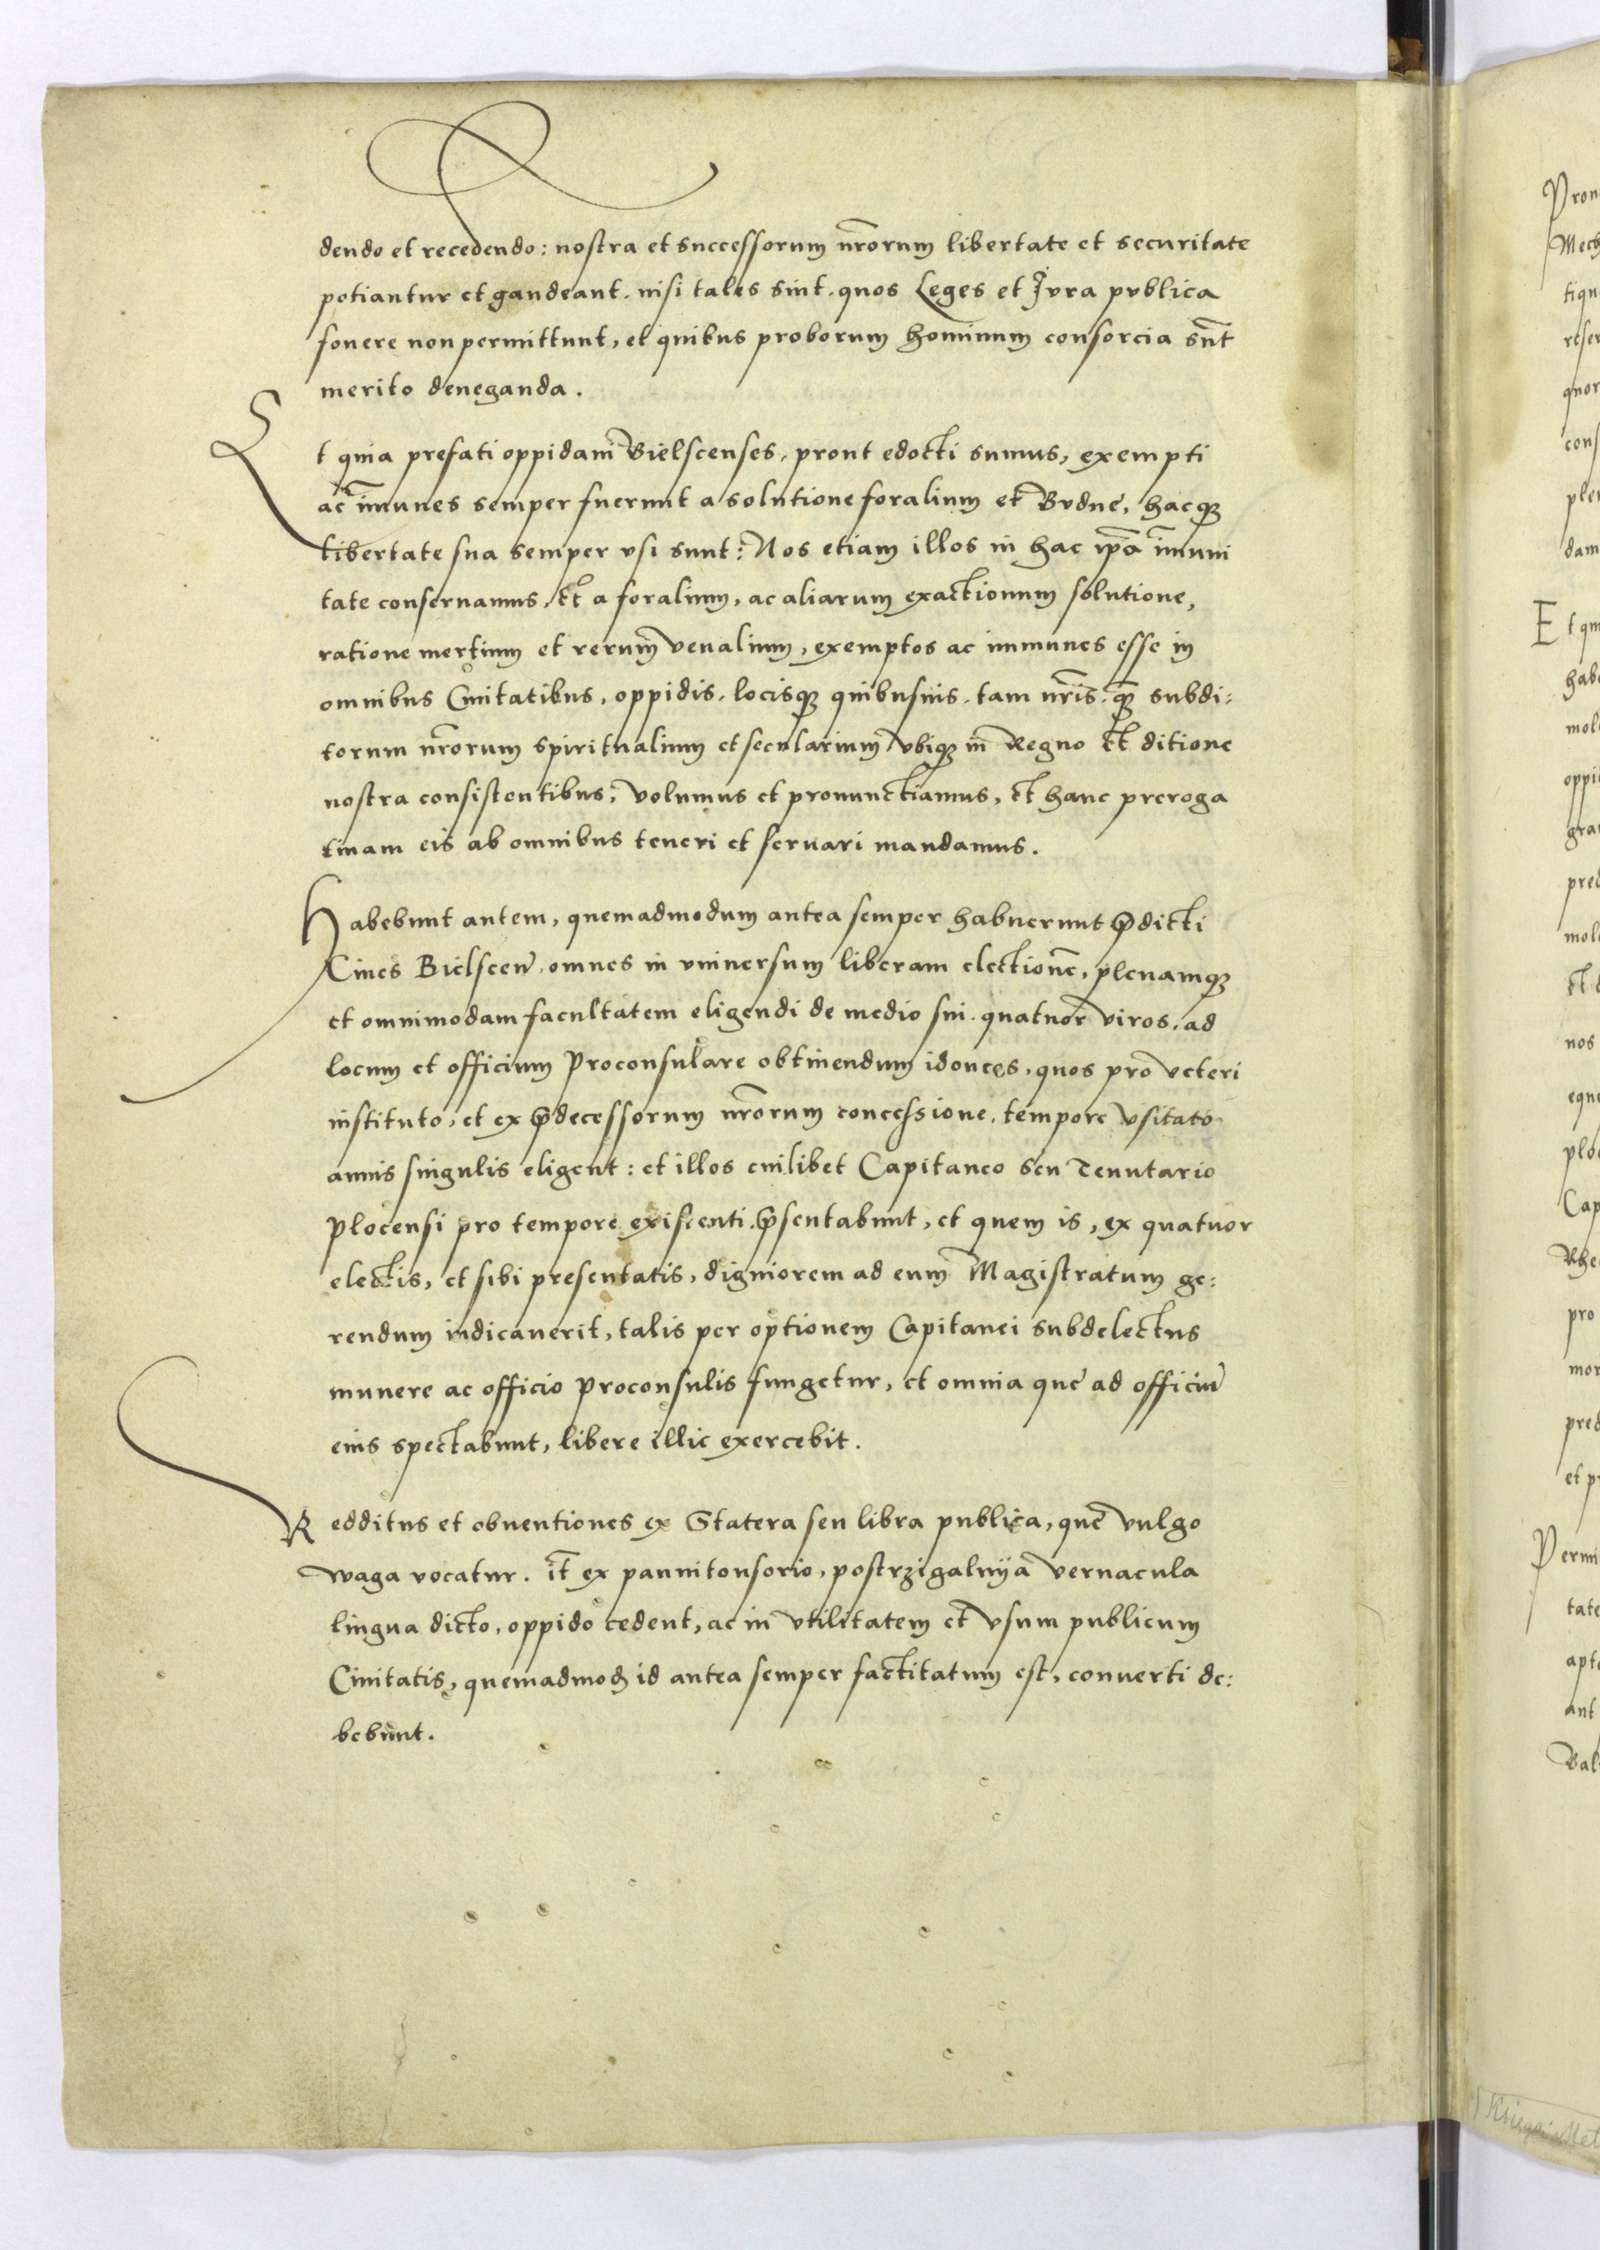 dendo et recedendo: nostra et successorum nr̃orum libertate et securitate
potiantur et gaudeant. nisi tales sint. quos Leges et Jura publica
fouere non permittunt, et quibus proborum hominum consorcia sũt
merito deneganda.
Et quia prefati oppidani Bielscenses, prout edocti sumus, exempti
ac im̃unes semper fuerunt a solutione foralium et Budne, hacq3
libertate sua semper vsi sunt: Nos etiam illos in hac ip̃a im̃uni
tate conseruamus, et a foralium, ac aliarum exactionum solutione,
ratione mertium et rerum venalium, exemptos ac immunes esse in
omnibus Ciuitatibus, oppidis, locisq3 quibusuis. tam nr̃is. q̃3 subdi:
torum nr̃orum spiritualium et secularium vbiq3 in Regno et ditione
nostra consistentibus, volumus et pronunctiamus, et hanc preroga
tiuam eis ab omnibus teneri et seruari mandamus.
Habebunt autem, quemadmodum antea semper habuerunt p̃dicti
Ciues Bielsceñ. omnes in vniuersum liberam electionẽ, plenamq3
et omnimodam facultatem eligendi de medio sui quatuor viros, ad
locum et officium Proconsulare obtinendum idoneos, quos pro veteri
instituto, et ex p̃decessorum nr̃orum concessione, tempore vsitato
annis singulis eligent: et illos cuilibet Capitaneo seu Tenutario
Plocensi pro tempore existenti p̃sentabunt, et quem is, ex quatuor
electis, et sibi presentatis, digniorem ad eum Magistratum ge:
rendum iudicauerit, talis per optionem Capitanei subdelectus
munere ac officio Proconsulis fungetur, et omnia que ad officiũ
eius spectabunt, libere illic exercebit.
Redditus et obuentiones ex Statera seu libra publica, que vulgo
waga vocatur. it̃ ex pannitonsorio, postrzigalnya vernacula
lingua dicto, oppido cedent, ac in vtilitatem et vsum publicum
Ciuitatis, quemadmod3 id antea semper factitatum est, conuerti de:
bebunt.